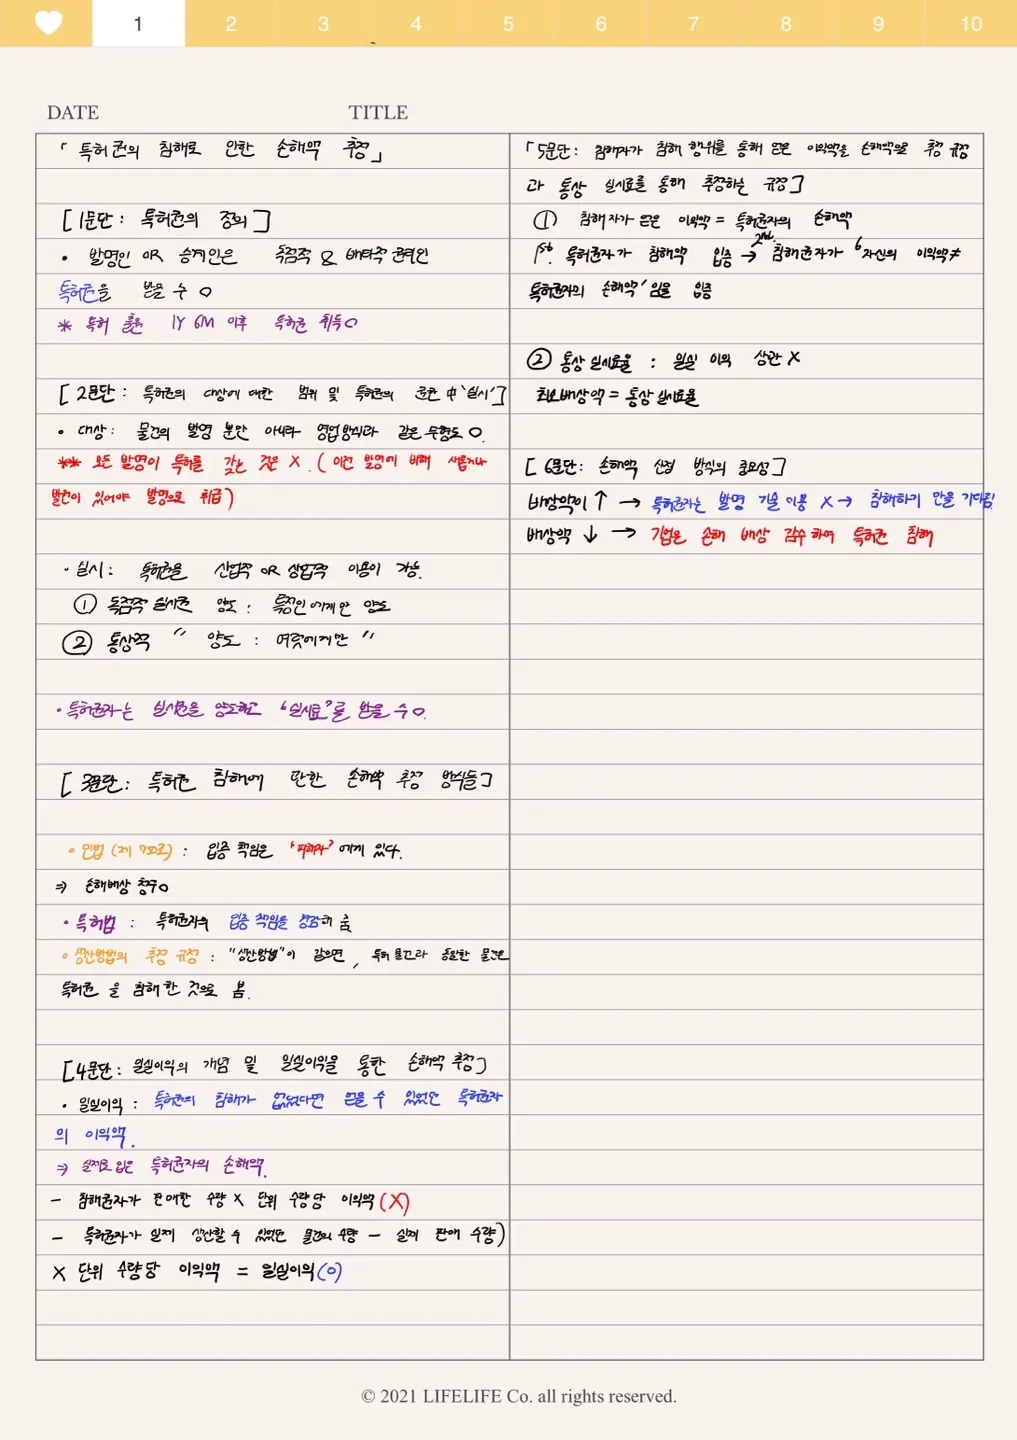 1 2 3 4 5 6 7 8 9 10
DATE TITLE
「특허권의 침해로 인한 손해액 추정」
[1문단: 특허권의 정의]
• 발명인 OR 승계인은 독점적 & 배타적 권리인
특허권을 받을 수 O
* 특허 출원 1Y 6M 이후 특허권 취득O
[2문단: 특허권의 대상에 대한 범위 및 특허권의 권한 中 '실시']
• 대상: 물건의 발명 뿐만 아니라 영업방식과 같은 무형도 O.
** 모든 발명이 특허를 갖는 것은 X. (이전 발명에 비해 새롭거나
발전이 있어야 발명으로 취급)
• 실시: 특허권을 산업적 OR 상업적 이용이 가능.
① 독점적 실시권 양도: 특정인에게만 양도
② 통상적 〃 양도: 여럿에게만 〃
• 특허권자는 실시권을 양도하고 "실시료"를 받을 수 O.
[3문단: 특허권 침해에 관한 손해액 추정 방식들]
• 민법 (제 750조): 입증 책임은 '피해자'에게 있다.
⇒ 손해배상 청구O
• 특허법: 특허권자의 입증 책임을 경감해 줌
• 생산방법의 추정 규정: "생산방법"이 같으면, 특허 물건과 동일한 물건은
특허권을 침해한 것으로 봄.
[4문단: 일실이익의 개념 및 일실이익을 통한 손해액 추정]
• 일실이익: 특허권의 침해가 없었다면 얻을 수 있었던 특허권자
의 이익액.
⇒ 실제로 입은 특허권자의 손해액.
- 침해권자가 판매한 수량 X 단위 수량당 이익액 (X)
- 특허권자가 실제 생산할 수 있었던 물건의 수량 - 실제 판매 수량)
X 단위 수량당 이익액 = 일실이익(O)
「5문단: 침해자가 침해 행위를 통해 얻은 이익액을 손해액으로 추정 규정
과 통상 실시료를 통해 추정하는 규정]
① 침해자가 얻은 이익액 = 특허권자의 손해액
1st. 특허권자가 침해액 입증 → 2nd. 침해권자가 '자신의 이익액≠
특허권자의 손해액'임을 입증
② 통상 실시료율: 일실 이익 상관 X
최소배상액 = 통상 실시료율
[6문단: 손해액 산정 방식의 중요성]
배상액이 ↑ → 특허권자는 발명 기술 이용 X → 침해하기 만을 기다림.
배상액 ↓ → 기업은 손해 배상 감수하여 특허권 침해
© 2021 LIFELIFE Co. all rights reserved.